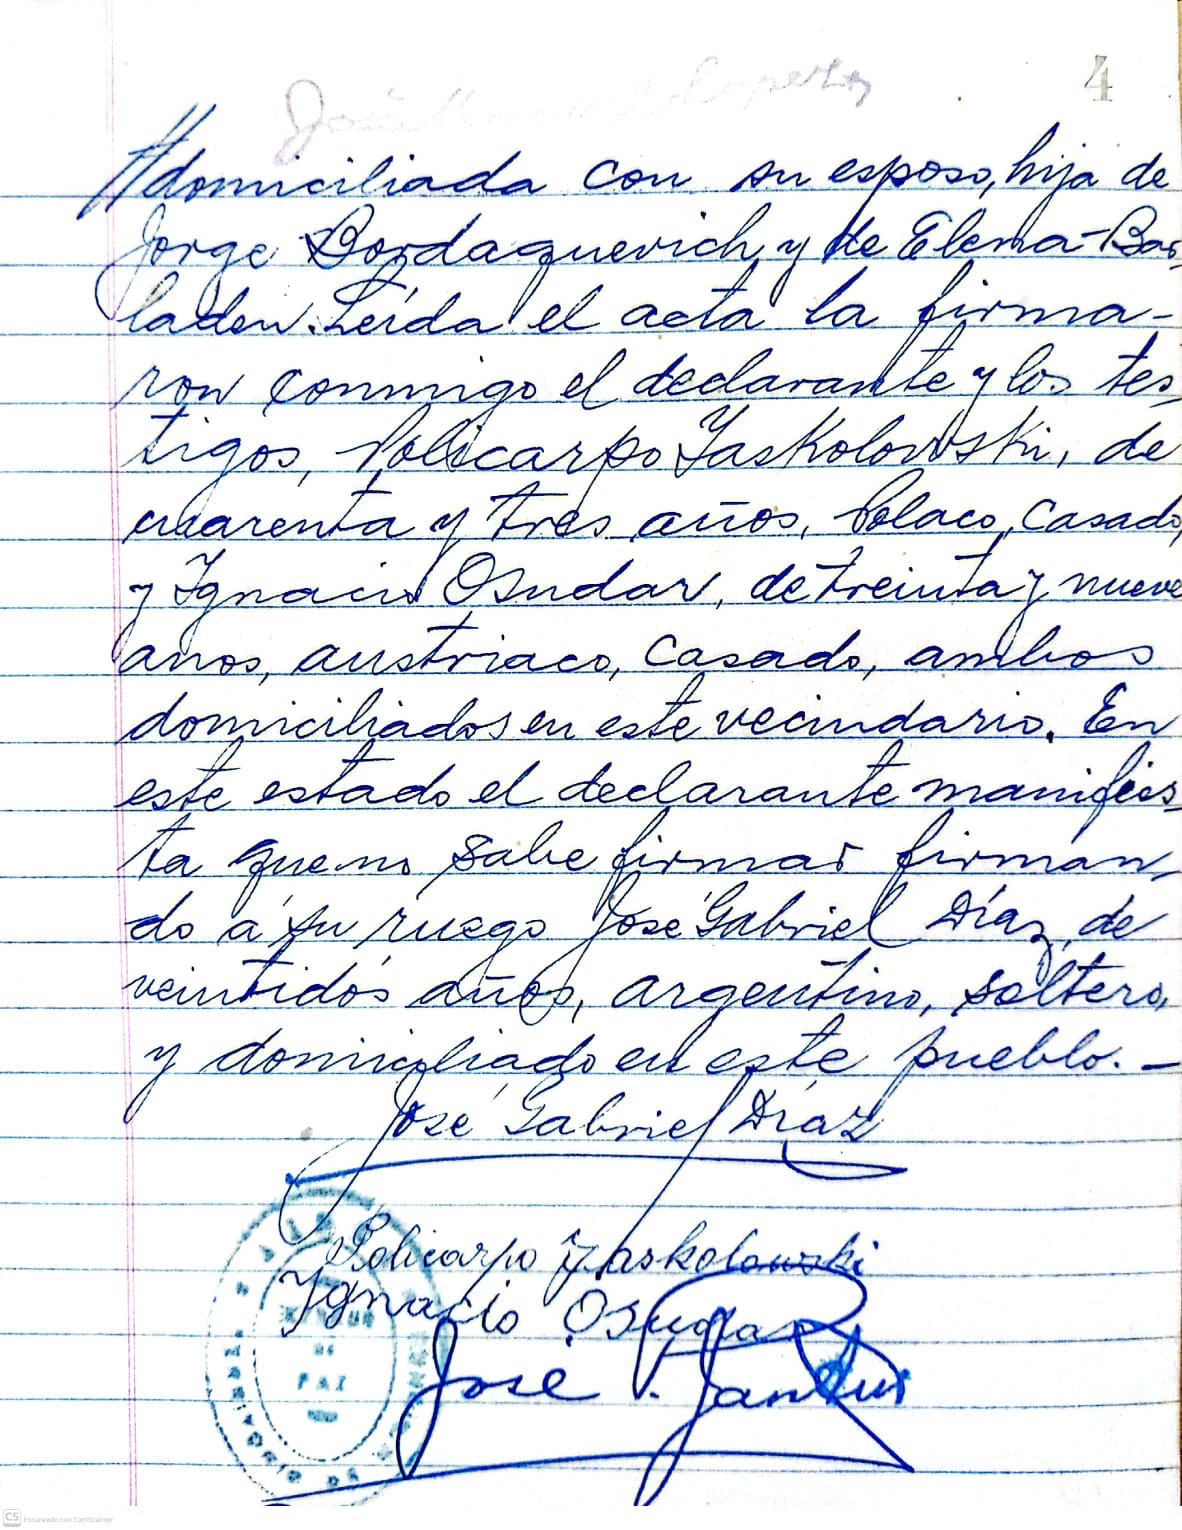 4
domiciliada con su esposo, hija de
Jorge Bordaquevich y de Elena Bar-
laden. Leída el acta la firma-
ron conmigo el declarante y los tes-
tigos, Policarpo Yaskolowski, de
cuarenta y tres años, Polaco, casado,
y Ignacio Osudar, de treinta y nueve
años, austriaco, casado, ambos
domiciliados en este vecindario. En
este estado el declarante manifies-
ta que no sabe firmar firman-
do a su ruego José Gabriel Díaz, de
veintidós años, argentino, soltero,
y domiciliado en este pueblo. —
José Gabriel Díaz
Policarpo Yaskolowski
Ignacio Osudar
José
DE
PAZ
CS Escaneado con CamScanner